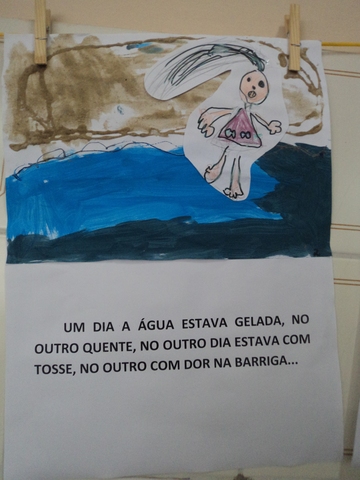 UM DIA A ÁGUA ESTAVA GELADA, NO
OUTRO QUENTE, NO OUTRO DIA ESTAVA COM
TOSSE, NO OUTRO COM DOR NA BARRIGA...